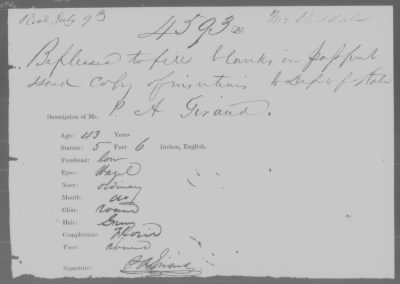 Recd July 9th
4593
Be pleased to fill blanks in passport
send copy of to Dept of State
P. A. Giraud.
Description of Mr.
Age: 43 Years
Stature: 5 Feet 6 Inches, English.
Forehead: low
Eyes: Hazel
Nose: ordinary
Mouth:
Chin: round
Hair: Grey
Complexion: Florid
Face: round
Signature: P A Giraud